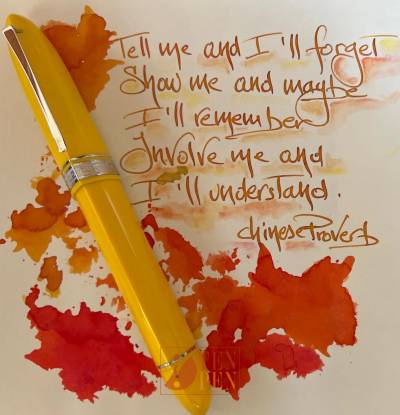 Tell me and I'll forget
Show me and maybe
I'll remember
Involve me and
I'll understand.
chinese Proverb
PEN
PEN